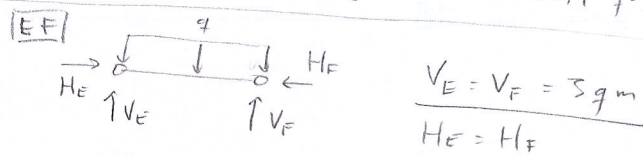 EF
q
H_E
H_F
V_E
V_F
V_E = V_F = 3qm
H_E = H_F